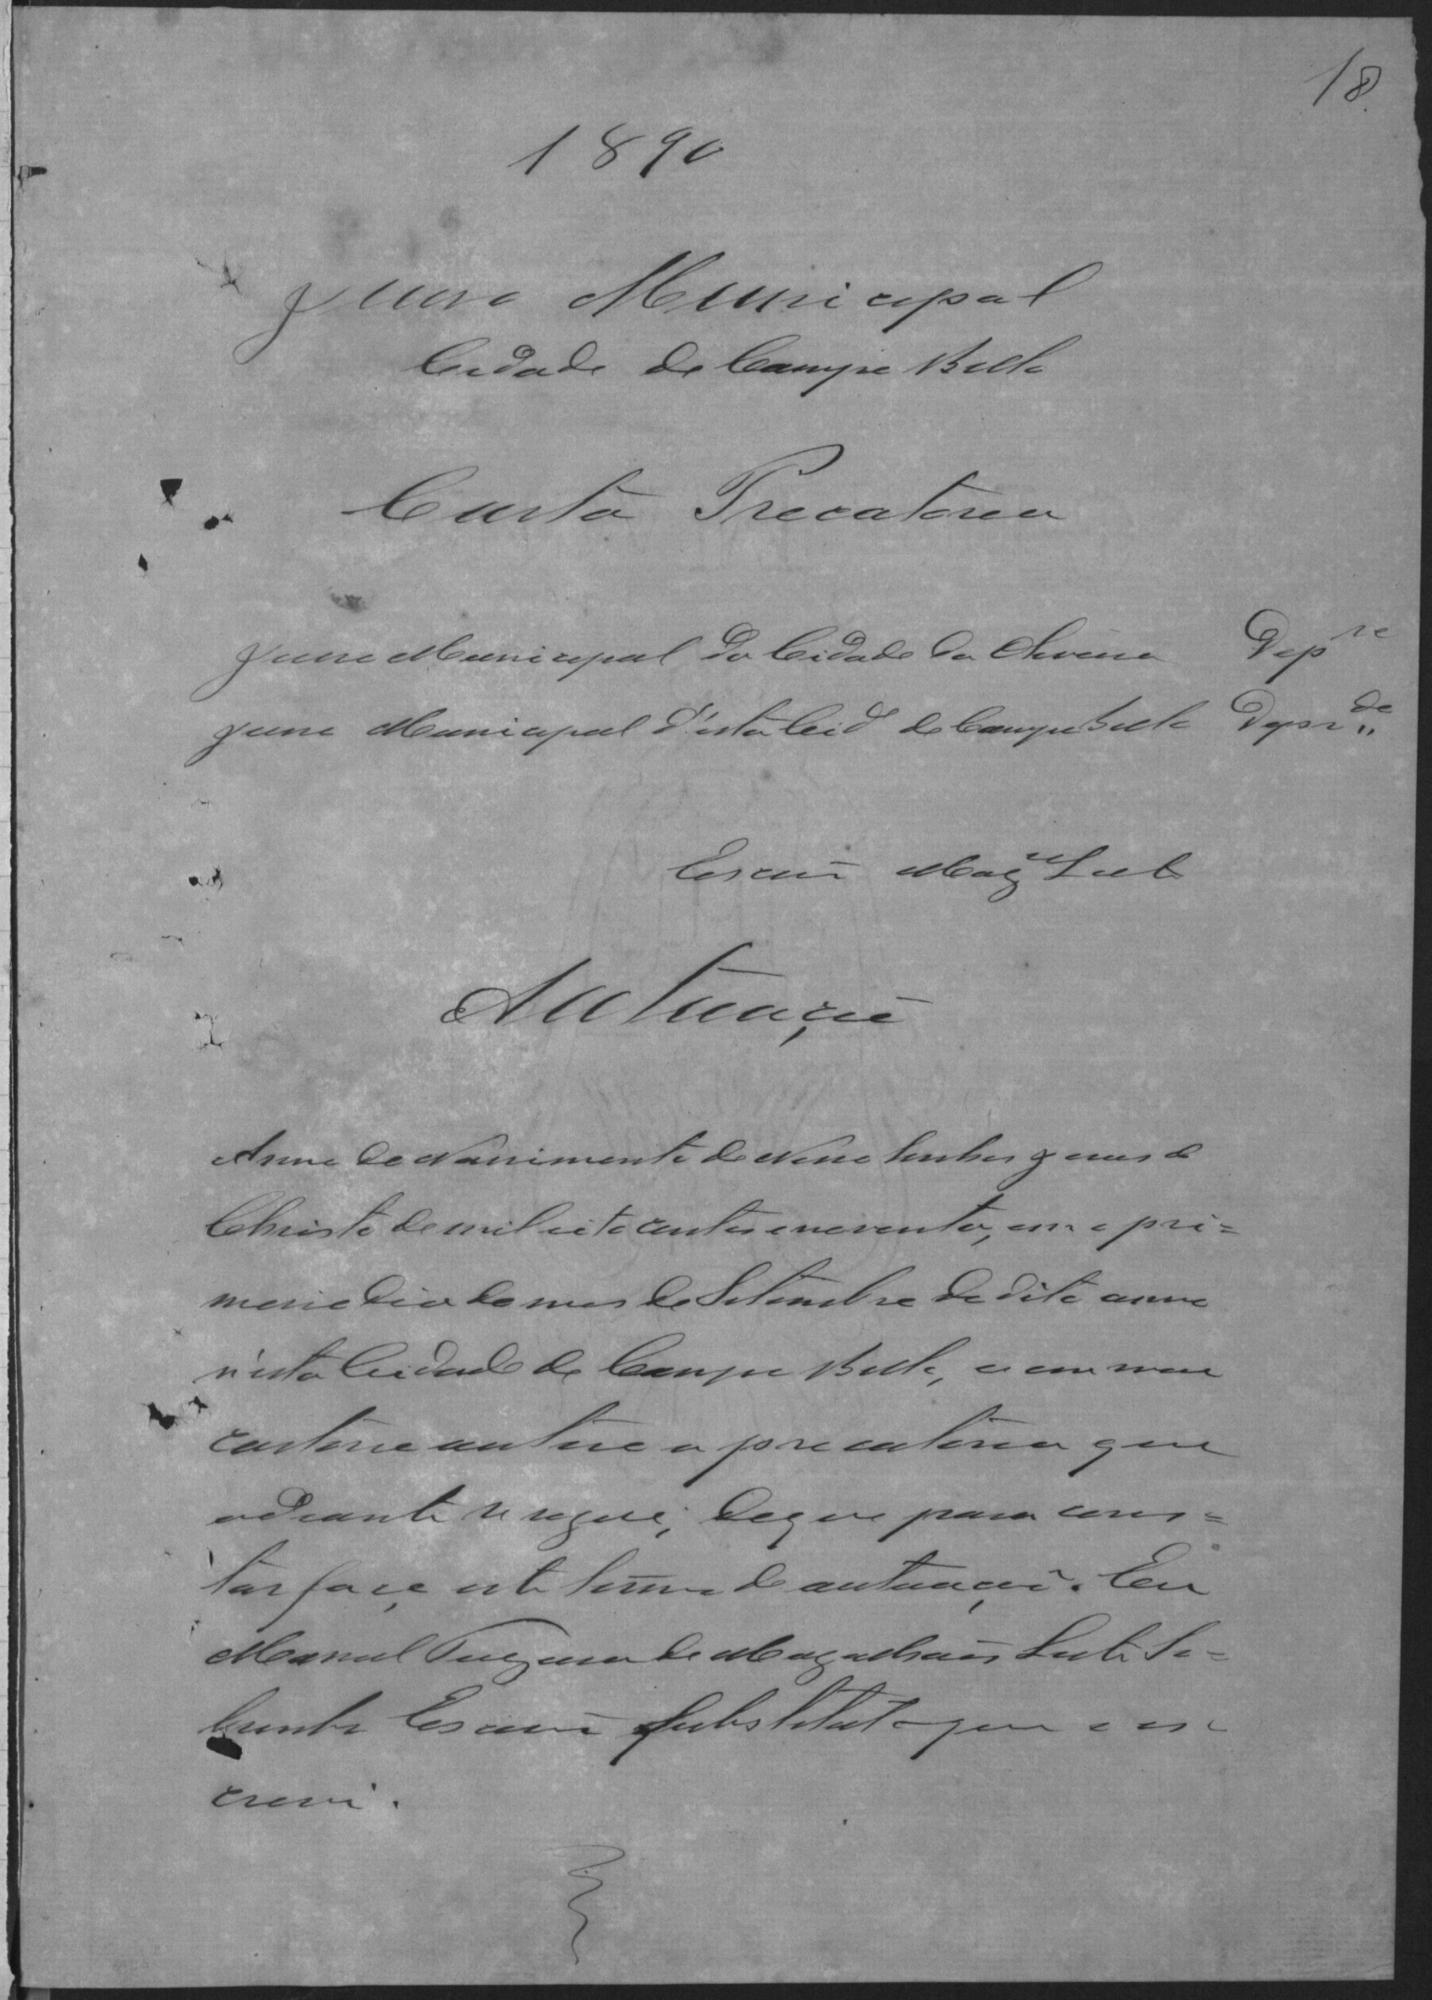 18
1890
Juizo Municipal
Cidade de Campo Bello
Carta Precatoria
Juizo Municipal da Cidade da Oliveira Dep.te
Juizo Municipal d'esta Cid.e de Campo Bello Depr.do
Escrivão Mag.es Leite
Autuação
Anno do Nascimento de Nosso Senhor Jesus
Christo de mil oito centos e noventa, em o pri=
meiro dia do mes de Setembro do dito anno
n'esta Cidade de Campo Bello, e em meu
cartorio autuei a precatoria que
adiante se segue; do que para cons=
tar faço este termo de autuação. Eu
Manoel de Magalhães Leite
Escrivão Substituto que o es
crevi.